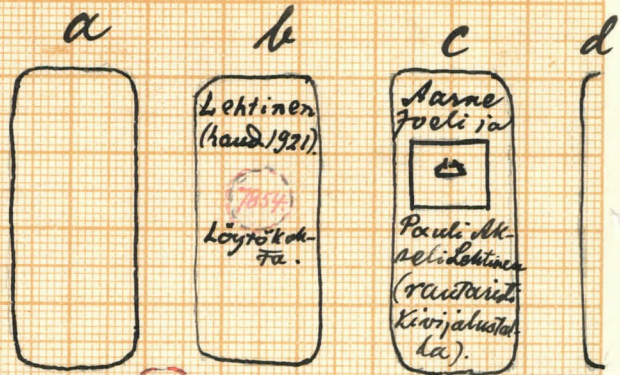 a b c d
Lehtinen
(haud. 1921).
7854
Löytökoh-
ta.
Aarne
Joeli ja
Pauli Ak-
seli Lehtinen
(rautaristi
kivijalustal-
la).